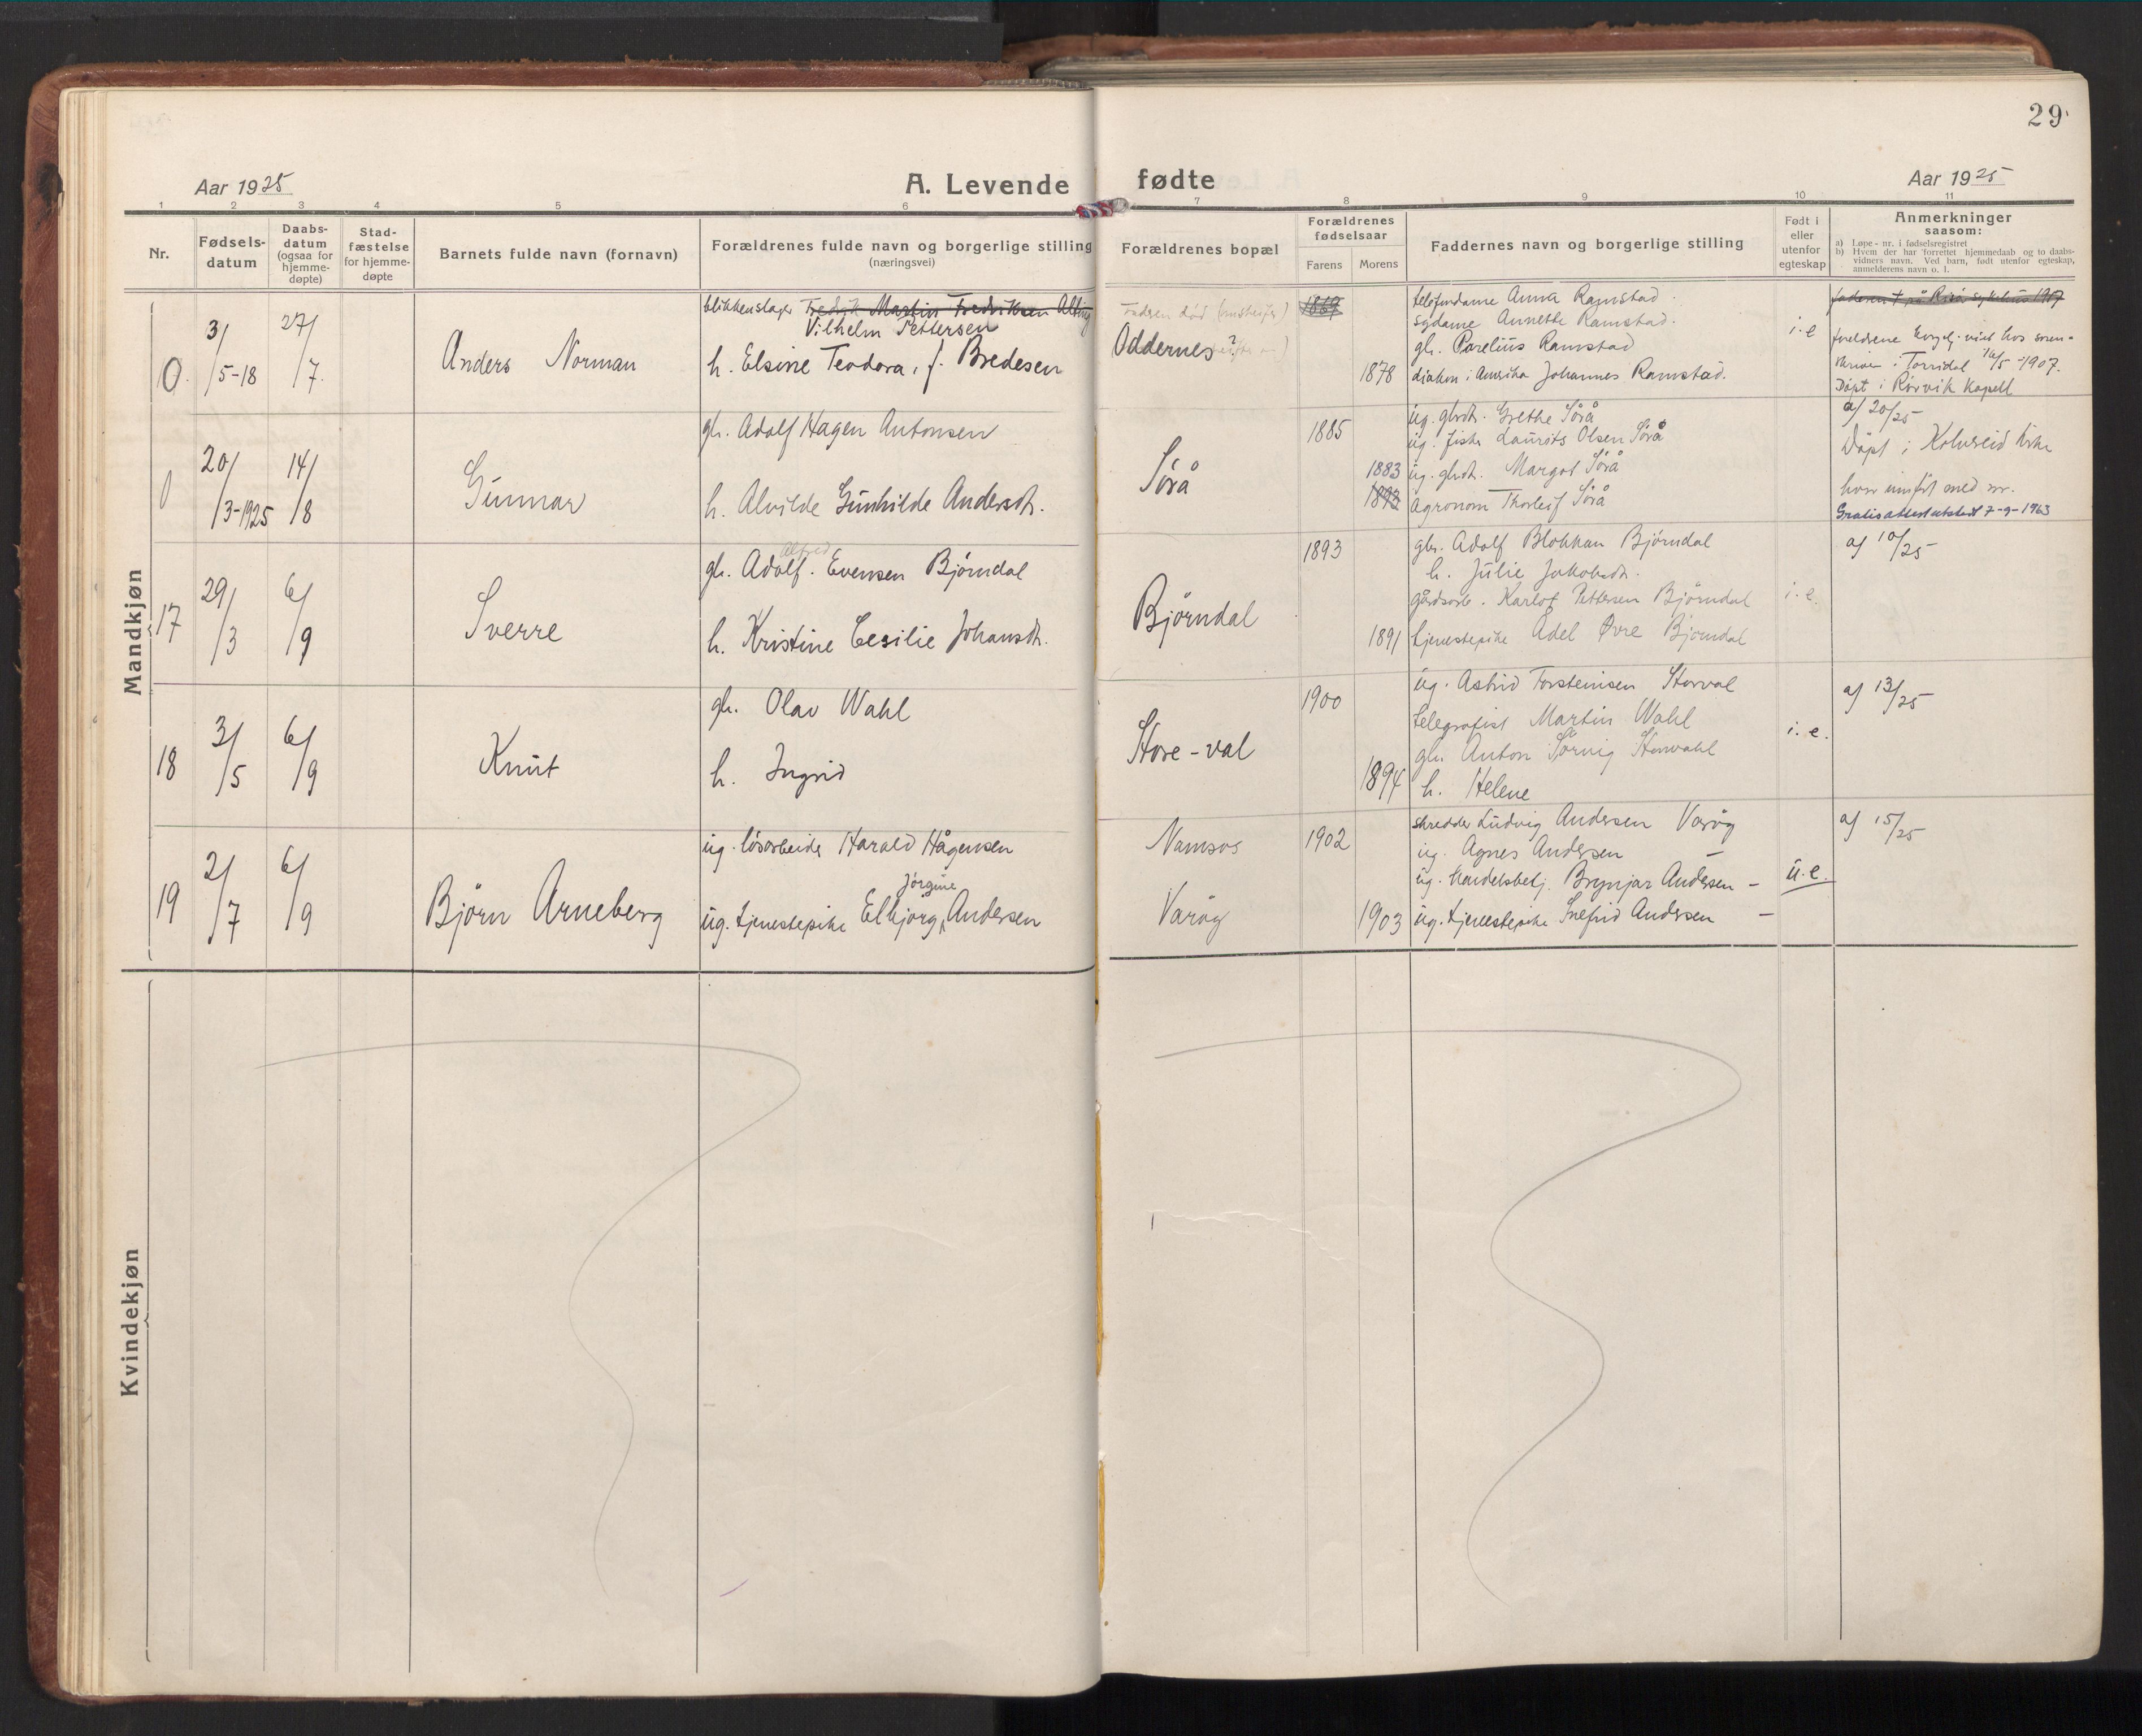 29
Aar 1925
A. Levende fødte
Aar 1925
1 2 3 4 5 6 7 8 9 10 11
Nr.
Fødsels-
datum
Daabs-
datum
(ogsaa for
hjemme-
døpte)
Stad-
fæstelse
for hjemme-
døpte
Barnets fulde navn (fornavn)
Forældrenes fulde navn og borgerlige stilling
(næringsvei)
Forældrenes bopæl
Forældrenes
fødselsaar
Farens
Morens
Faddernes navn og borgerlige stilling
Født i
eller
utenfor
egteskap
Anmerkninger
saasom:
a) Løpe-nr. i fødselsregistret
b) Hvem der har forrettet hjemmedaab og to daabs-
vidners navn. Ved barn, født utenfor egteskap,
anmelderens navn o. l.
Mandkjøn
0.
3/5-18
27/7.
Anders Norman
blikkenslager Fredrik Martin Fredriksen
Vilhelm Pettersen
h. Elsine Teodora, f. Bredesen
Faderen død
Oddernes?
1869
1878
telefondame Anna Ramstad.
sydame Annette Ramstad.
gb. Parelius Ramstad
diakon i Amerika Johannes Ramstad.
i. e
faderen † på sykehus 1907
foreldrene borgelj. viet hos soren-
skriver i Torridal 16/5-1907.
Døpt i Rørvik kapell
0
20/3-1925
14/8
Gunnar
gb. Adolf Hagen Antonsen
h. Alvilde Gunhilde Andersdt.
Sørå
1885
1883
1892
ug. gbrdt. Grethe Sørå
ug. fisker Laurits Olsen Sørå
ug. gbrdt. Margot Sørå
Agronom Thorleif Sørå
a/ 20/25
Døpt i Kolvereid kirke
hvor innført med nr.
Gratisattest utstedt 7-9-1963
17
29/3
6/9
Sverre
Alfred
gb. Adolf. Evensen Bjørndal
h. Kristine Cesilie Johansdt.
Bjørndal
1893
1891
gbr. Adolf Blokkan Bjørndal
h. Julie Jakobsdt.
gårdsarb. Karlot Pettersen Bjørndal
tjenestepike Adel Øvre Bjørndal
i. e.
a/ 10/25
18
3/5
6/9
Knut
gb. Olav Wahl
h. Ingrid
Store-val
1900
1894
ug. Astrid Torsteinsen Storval
telegrafist Martin Wahl
gb. Anton Sørvig Storvahl
h. Helene
i. e.
a/ 13/25
19
2/7
6/9
Bjørn Arneberg
ug. løsarbeider Harald Hågensen
Jørgine
ug. tjenestepike Elbjørg Andersen
Namsos
Varøy
1902
1903
skredder Ludvig Andersen Varøy
ug. Agnes Andersen –
ug. Handelsbetj. Brynjar Andersen –
ug. tjenestepike Snefrid Andersen –
u. e.
a/ 15/25
Kvindekjøn